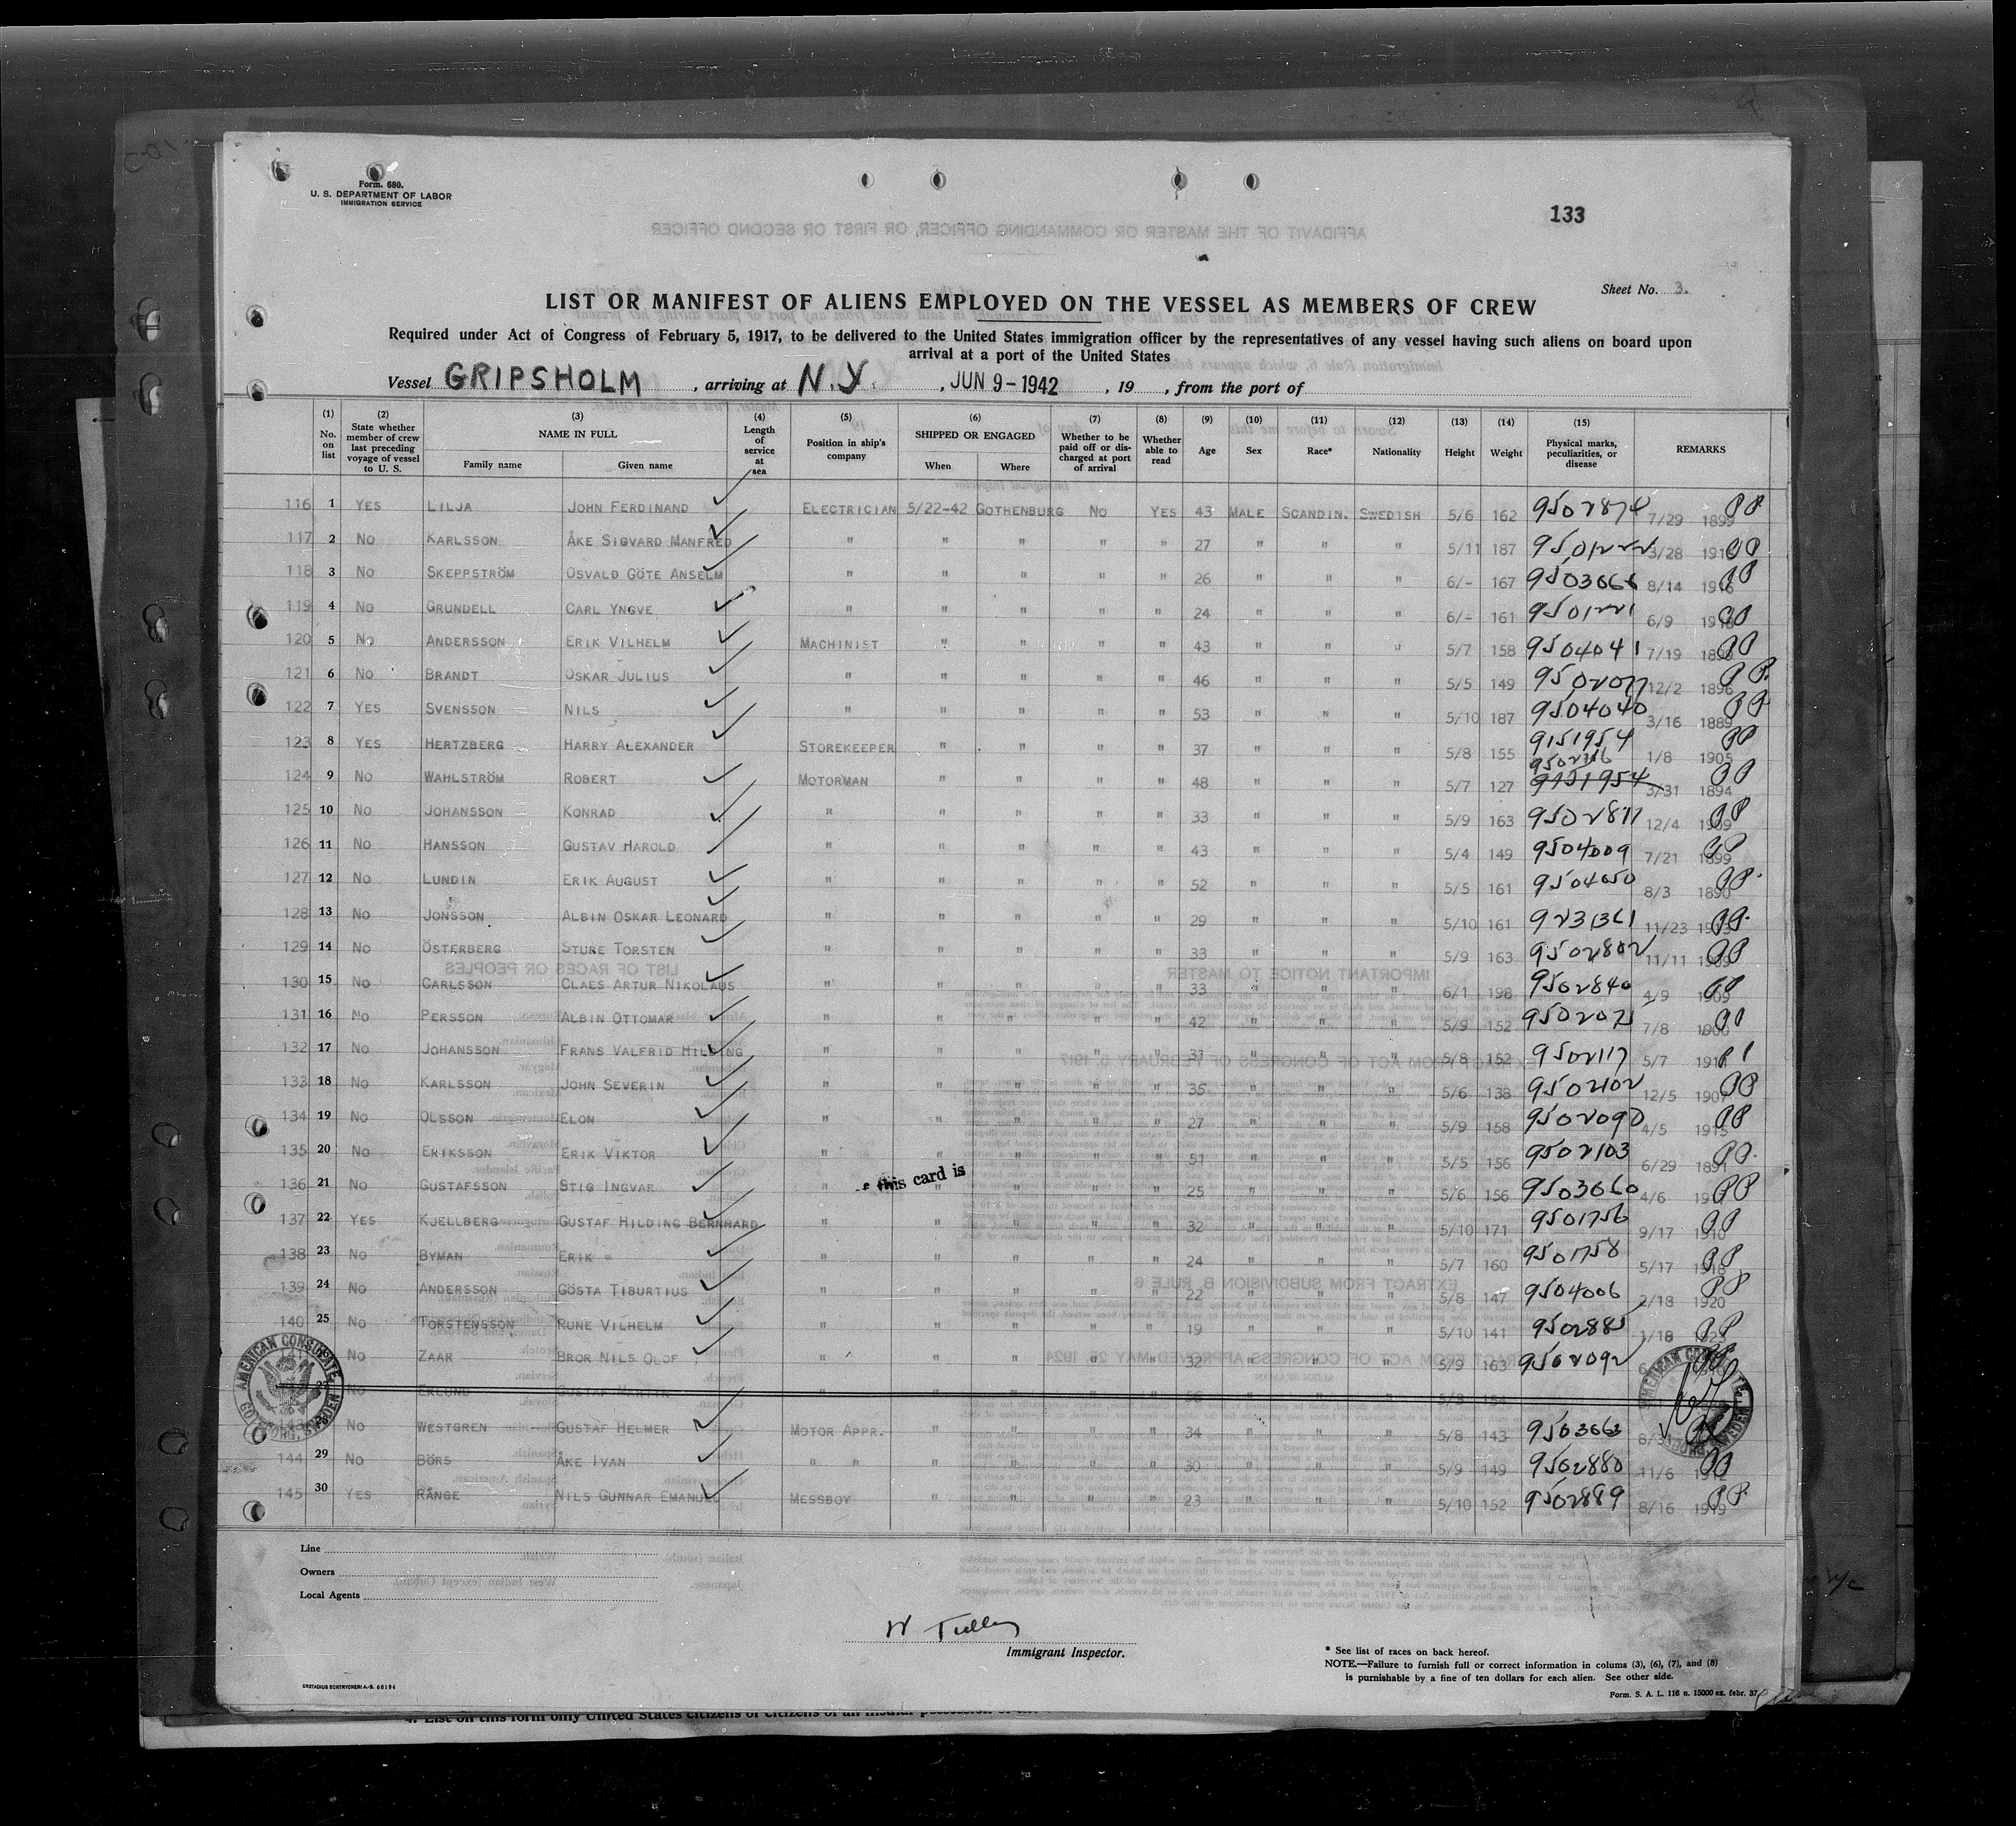 Form. 680.
U. S. DEPARTMENT OF LABOR
IMMIGRATION SERVICE
133
Sheet No. 3.
LIST OR MANIFEST OF ALIENS EMPLOYED ON THE VESSEL AS MEMBERS OF CREW
Required under Act of Congress of February 5, 1917, to be delivered to the United States immigration officer by the representatives of any vessel having such aliens on board upon
arrival at a port of the United States
Vessel GRIPSHOLM, arriving at N.Y., JUN 9-1942, 19, from the port of
(1) No. on list (2) State whether member of crew last preceding voyage of vessel to U. S. (3) NAME IN FULL Family name Given name (4) Length of service at sea (5) Position in ship's company (6) SHIPPED OR ENGAGED When Where (7) Whether to be paid off or discharged at port of arrival (8) Whether able to read (9) Age (10) Sex (11) Race* (12) Nationality (13) Height (14) Weight (15) Physical marks, peculiarities, or disease REMARKS
116 1 YES LILJA JOHN FERDINAND ✓ ELECTRICIAN 5/22-42 GOTHENBURG NO YES 43 MALE SCANDIN. SWEDISH 5/6 162 9502874 7/29 1899 PP
117 2 NO KARLSSON ÅKE SIGVARD MANFRED ✓ " " " " " 27 " " " 5/11 187 9501222 3/28 PP
118 3 NO SKEPPSTRÖM OSVALD GÖTE ANSELM ✓ " " " " " 26 " " " 6/- 167 8/14 1916 PP
119 4 NO GRUNDELL CARL YNGVE ✓ " " " " " 24 " " " 6/- 161 9501221 6/9 1918 PP
120 5 NO ANDERSSON ERIK VILHELM ✓ MACHINIST " " " " 43 " " " 5/7 158 9504041 7/19 PP
121 6 NO BRANDT OSKAR JULIUS ✓ " " " " " 46 " " " 5/5 149 9502077 12/2 1896 PP
122 7 YES SVENSSON NILS ✓ " " " " " 53 " " " 5/10 187 9504040 3/16 1889 PP
123 8 YES HERTZBERG HARRY ALEXANDER ✓ STOREKEEPER " " " " 37 " " " 5/8 155 9151954 1/8 1905 PP
124 9 NO WAHLSTRÖM ROBERT ✓ MOTORMAN " " " " 48 " " " 5/7 127 9502116 9151954 3/31 1894 PP
125 10 NO JOHANSSON KONRAD ✓ " " " " " 33 " " " 5/9 163 9502877 12/4 1909 PP
126 11 NO HANSSON GUSTAV HAROLD ✓ " " " " " 43 " " " 5/4 149 9504009 7/21 1899 PP
127 12 NO LUNDIN ERIK AUGUST ✓ " " " " " 52 " " " 5/5 161 9504050 8/3 1890 PP
128 13 NO JONSSON ALBIN OSKAR LEONARD ✓ " " " " " 29 " " " 5/10 161 9231361 11/23 PP
129 14 NO ÖSTERBERG STURE TORSTEN ✓ " " " " " 33 " " " 5/9 163 9502802 11/11 1909 PP
130 15 NO CARLSSON CLAES ARTUR NIKOLAUS ✓ " " " " " 33 " " " 6/1 198 9502840 4/9 1909 PP
131 16 NO PERSSON ALBIN OTTOMAR ✓ " " " " " 42 " " " 5/9 152 9502075 7/8 1900 PP
132 17 NO JOHANSSON FRANS VALFRID HILDING ✓ " " " " " 31 " " " 5/8 152 9502117 5/7 1911 PP
133 18 NO KARLSSON JOHN SEVERIN ✓ " " " " " 35 " " " 5/6 138 9502102 12/5 1907 PP
134 19 NO OLSSON ELON ✓ " " " " " 27 " " " 5/9 158 9502090 4/5 1915 PP
135 20 NO ERIKSSON ERIK VIKTOR ✓ " " " " " 51 " " " 5/5 156 9502103 6/29 1891 PP
136 21 NO GUSTAFSSON STIG INGVAR ✓ " " " " " 25 " " " 5/6 156 9503660 4/6 PP
this card is
137 22 YES KJELLBERG GUSTAF HILDING BERNHARD ✓ " " " " " 32 " " " 5/10 171 9501756 9/17 1910 PP
138 23 NO BYMAN ERIK ✓ " " " " " 24 " " " 5/7 160 9501758 5/17 1918 PP
139 24 NO ANDERSSON GÖSTA TIBURTIUS ✓ " " " " " 22 " " " 5/8 147 9504006 2/18 1920 PP
140 25 NO TORSTENSSON RUNE VILHELM ✓ " " " " " 19 " " " 5/10 141 9502885 1/18 PP
141 26 NO ZAAR BROR NILS OLOF ✓ " " " " " 32 " " " 5/9 163 9502092
27 NO ERLUND GUSTAF MARTIN " " " " " 56 " " " 5/3 154
143 NO WESTGREN GUSTAF HELMER ✓ MOTOR APPR. " " " " 34 " " " 5/8 143 9503663
144 29 NO BÖRS ÅKE IVAN ✓ " " " " " " 30 " " " 5/9 149 9502880 11/6 1912 PP
145 30 YES RÅNGE NILS GUNNAR EMANUEL ✓ MESSBOY " " " " 23 " " " 5/10 152 9502889 8/16 1919 PP
AMERICAN CONSULATE
SWEDEN
Line
Owners
Local Agents
W Tulley
Immigrant Inspector.
* See list of races on back hereof.
NOTE.—Failure to furnish full or correct information in colums (3), (6), (7), and (8)
is purnishable by a fine of ten dollars for each alien. See other side.
Form. S. A. L. 116 n. 15000 ex. febr. 37.